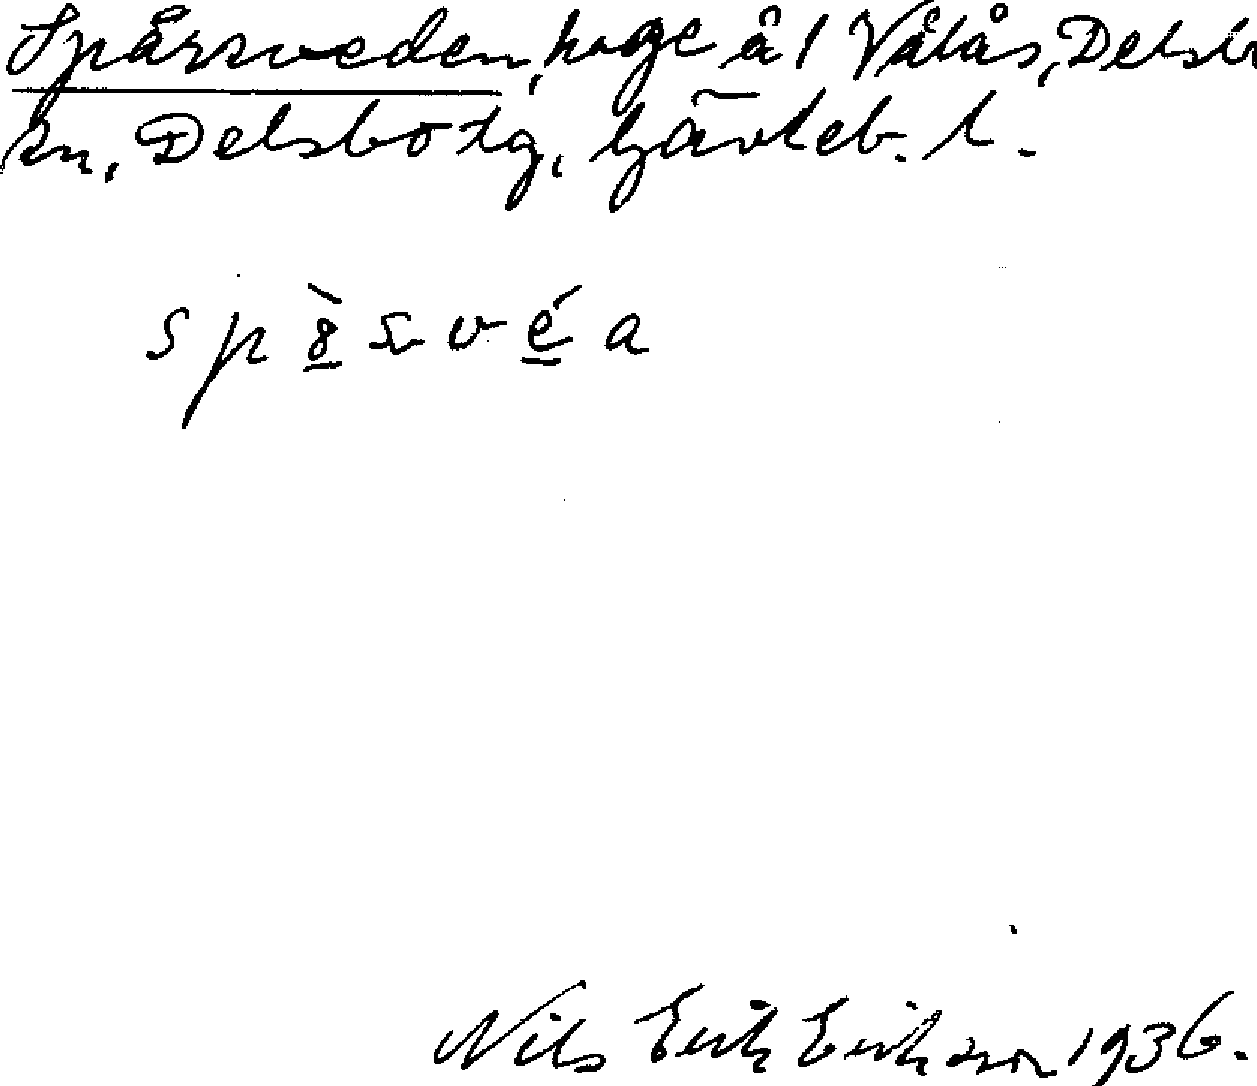 Spårsveden, hage å 1 Vålås, Delsb
sn, Delsbo tg, Gävleb. l.
Nils Erik Erikson 1936.